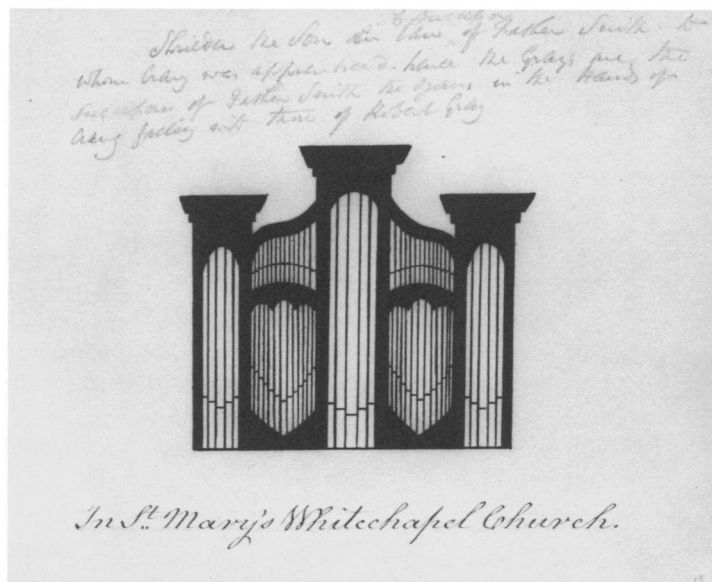 & Successor
Shrider the Son in Law of Father Smith to
whom Crang was apprenticed hence the Grays are the
successors of Father Smith the organs in the Hands of
Crang facing with those of Robert Gray
In St. Mary's Whitechapel Church.